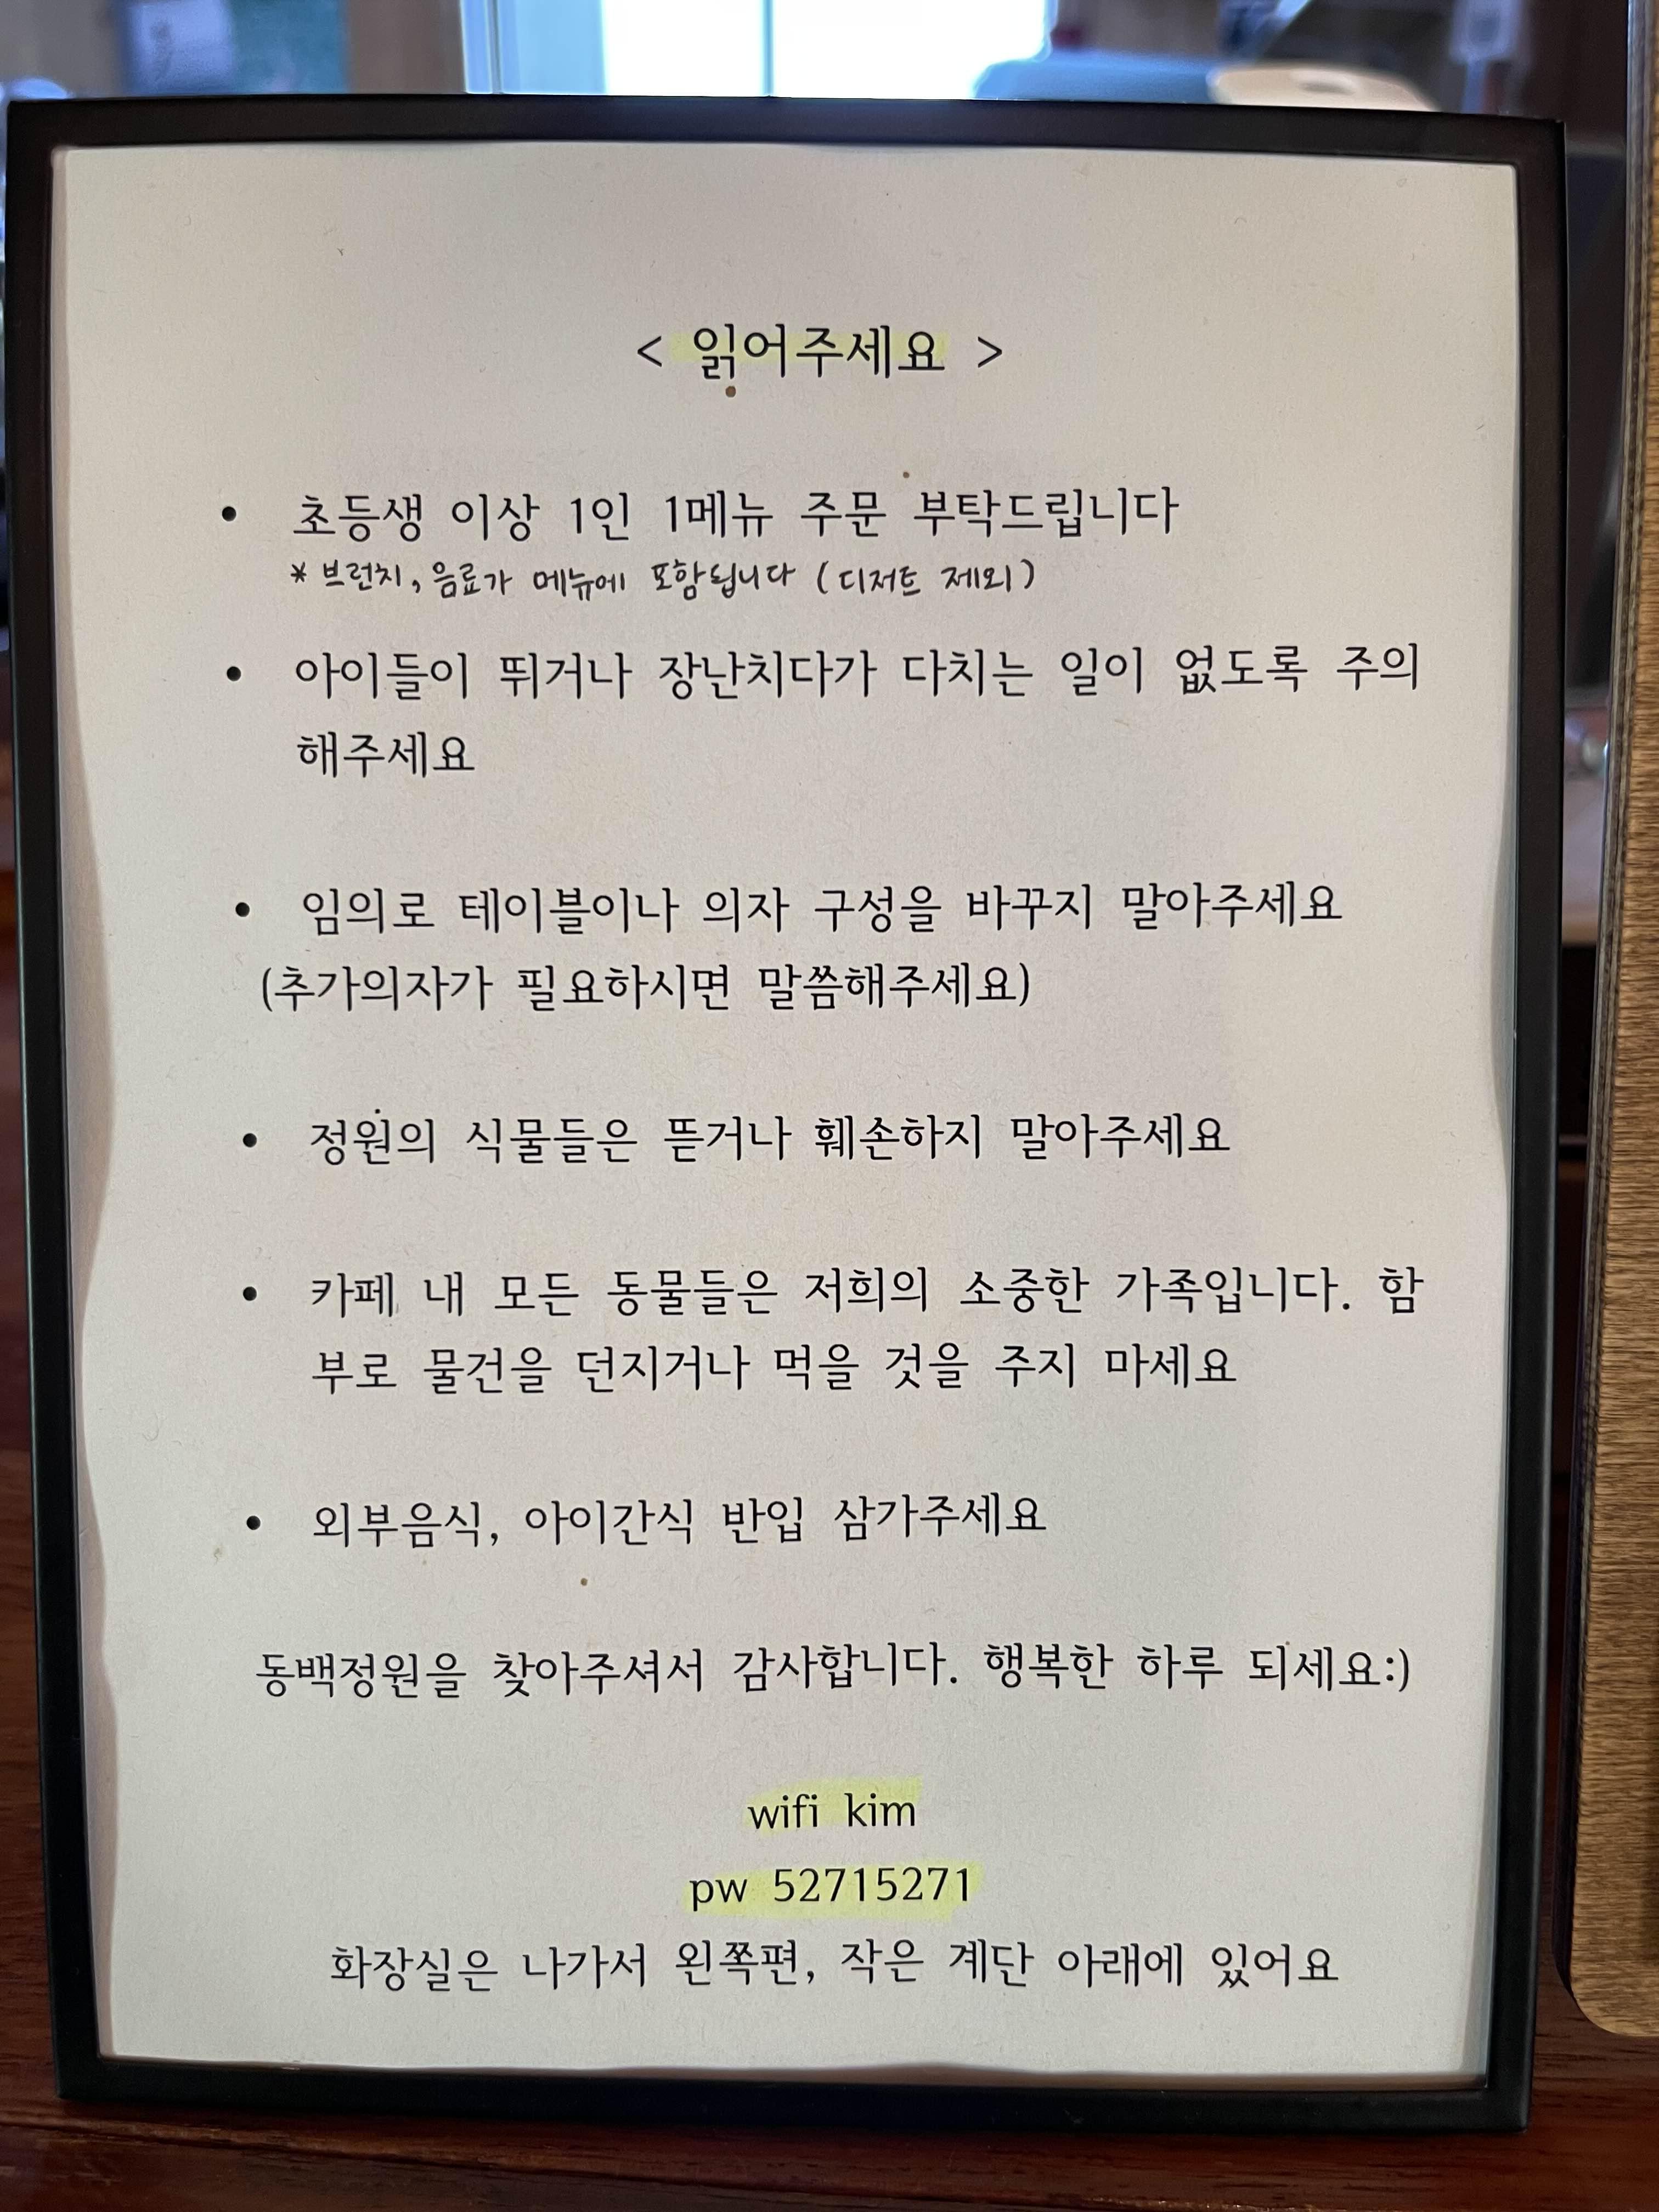 < 읽어주세요 >
• 초등생 이상 1인 1메뉴 주문 부탁드립니다
* 브런치, 음료가 메뉴에 포함됩니다 (디저트 제외)
• 아이들이 뛰거나 장난치다가 다치는 일이 없도록 주의
해주세요
• 임의로 테이블이나 의자 구성을 바꾸지 말아주세요
(추가의자가 필요하시면 말씀해주세요)
• 정원의 식물들은 뜯거나 훼손하지 말아주세요
• 카페 내 모든 동물들은 저희의 소중한 가족입니다. 함
부로 물건을 던지거나 먹을 것을 주지 마세요
• 외부음식, 아이간식 반입 삼가주세요
동백정원을 찾아주셔서 감사합니다. 행복한 하루 되세요:)
wifi kim
pw 52715271
화장실은 나가서 왼쪽편, 작은 계단 아래에 있어요